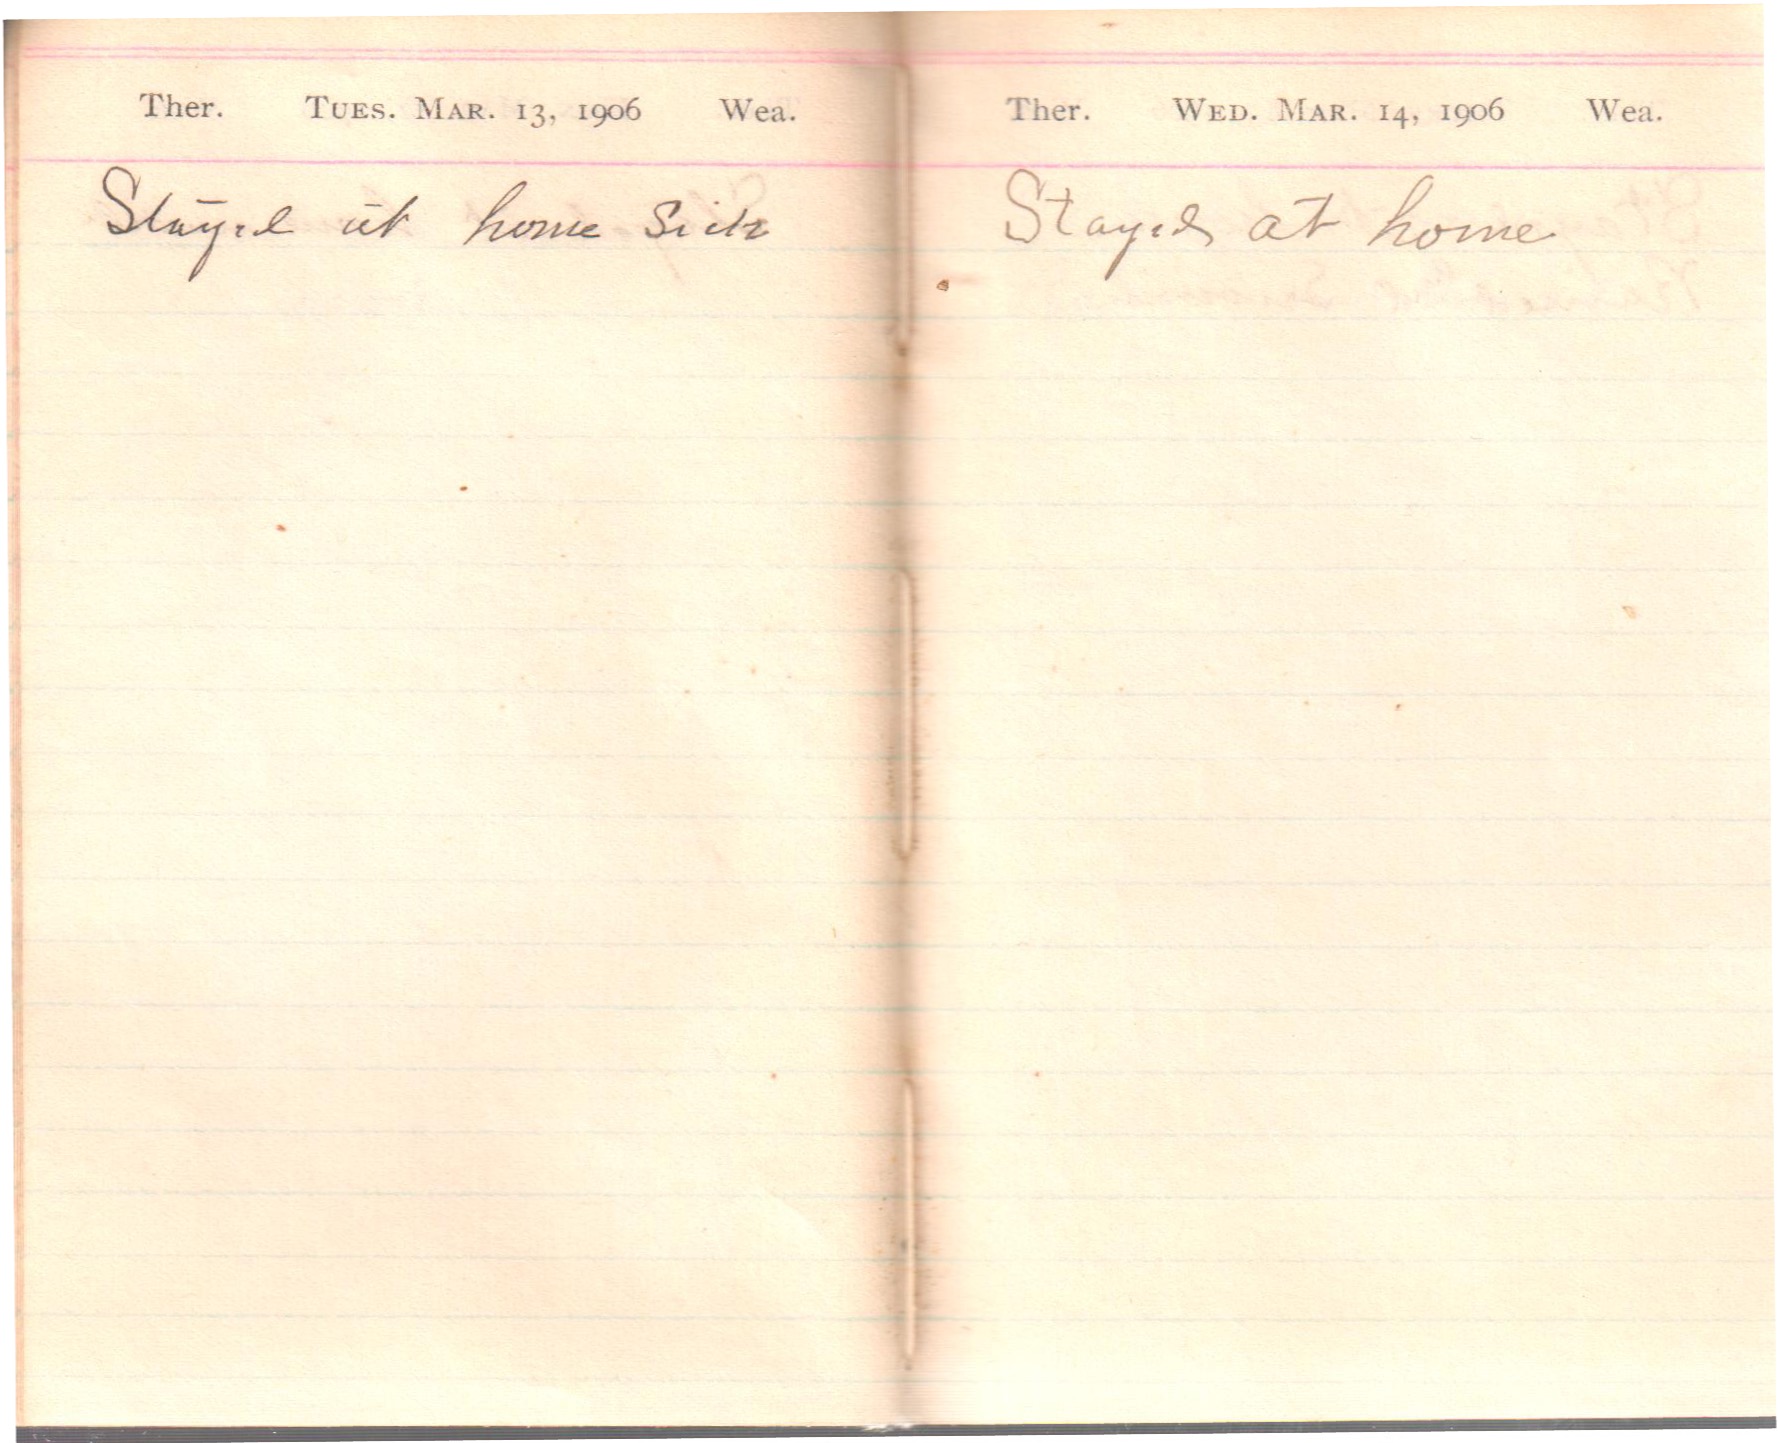 Ther. Tues. Mar. 13, 1906 Wea.
Stayed at home Sick
Ther. Wed. Mar. 14, 1906 Wea.
Stayed at home